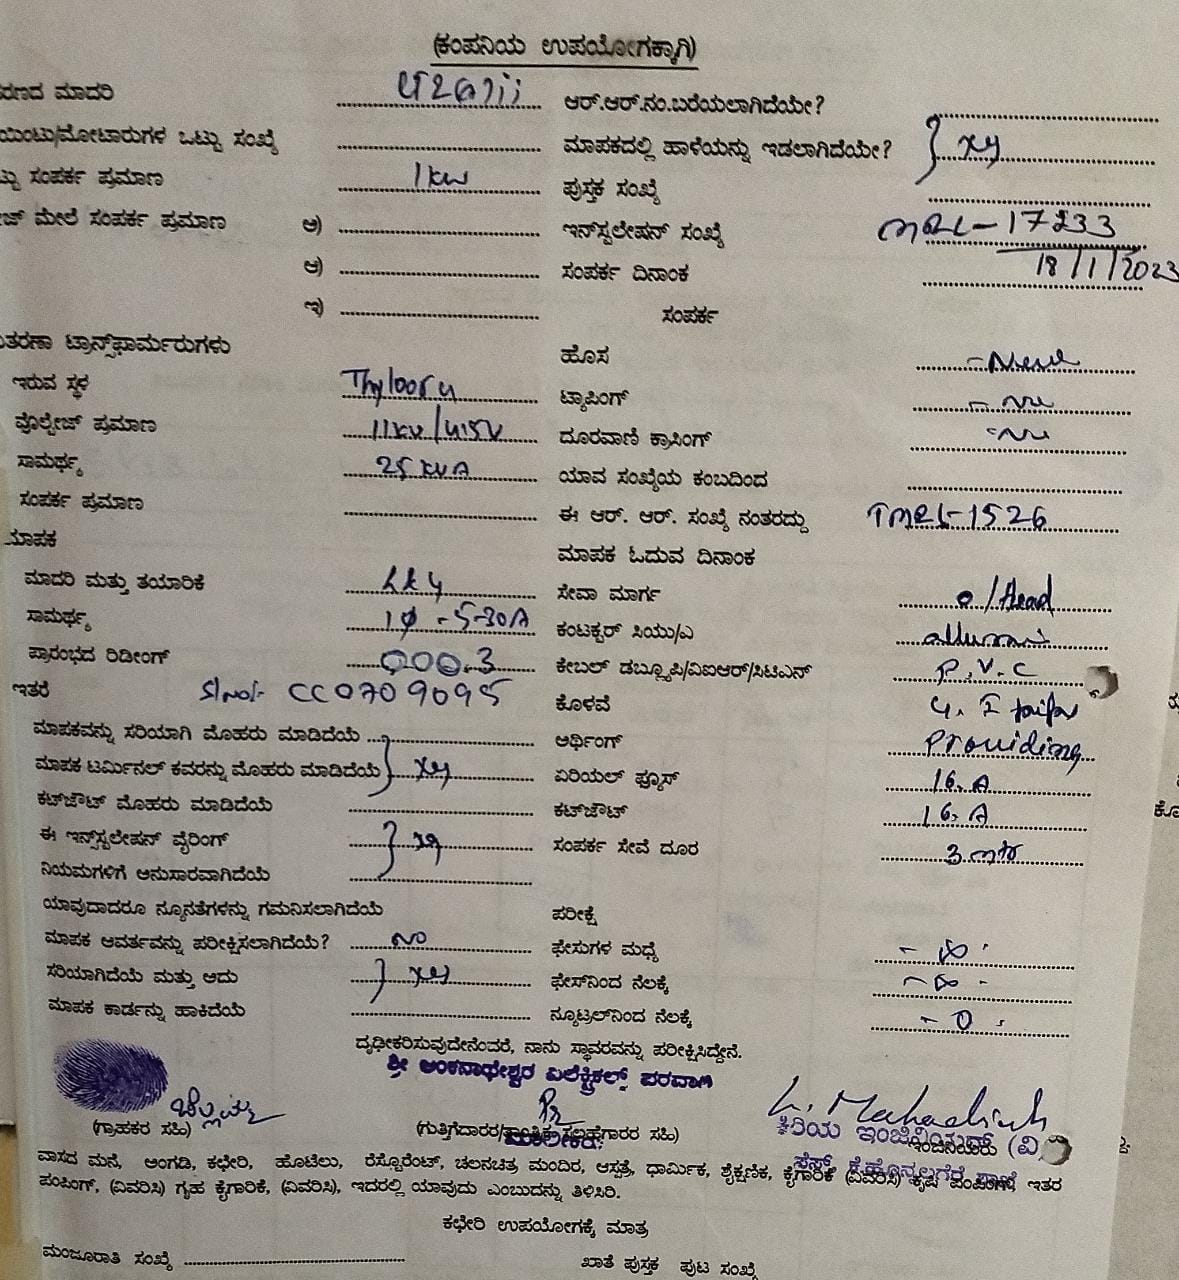 (ಕಂಪನಿಯ ಉಪಯೋಗಕ್ಕಾಗಿ)
ರಣದ ಮಾದರಿ ಆರ್.ಆರ್.ನಂ.ಬರೆಯಲಾಗಿದೆಯೇ?
ಯಿಂಟು/ಮೋಟಾರುಗಳ ಒಟ್ಟು ಸಂಖ್ಯೆ ಮಾಪಕದಲ್ಲಿ ಹಾಳೆಯನ್ನು ಇಡಲಾಗಿದೆಯೇ?
ಟ್ಟು ಸಂಪರ್ಕ ಪ್ರಮಾಣ 1kw ಪುಸ್ತಕ ಸಂಖ್ಯೆ
ಜ್ ಮೇಲೆ ಸಂಪರ್ಕ ಪ್ರಮಾಣ ಅ) ಇನ್‌ಸ್ಟಲೇಷನ್ ಸಂಖ್ಯೆ MRL-17233
ಆ) ಸಂಪರ್ಕ ದಿನಾಂಕ 18/1/2023
ಇ) ಸಂಪರ್ಕ
ತರಣಾ ಟ್ರಾನ್ಸ್‌ಫಾರ್ಮರುಗಳು ಹೊಸ -New
ಇರುವ ಸ್ಥಳ Thylooru ಟ್ಯಾಪಿಂಗ್
ವೊಲ್ಟೇಜ್ ಪ್ರಮಾಣ 11kv/415V ದೂರವಾಣಿ ಕ್ರಾಸಿಂಗ್
ಸಾಮರ್ಥ್ಯ 25 kVA ಯಾವ ಸಂಖ್ಯೆಯ ಕಂಬದಿಂದ
ಸಂಪರ್ಕ ಪ್ರಮಾಣ ಈ ಆರ್. ಆರ್. ಸಂಖ್ಯೆ ನಂತರದ್ದು TMRL-1526
ಮಾಪಕ ಮಾಪಕ ಓದುವ ದಿನಾಂಕ
ಮಾದರಿ ಮತ್ತು ತಯಾರಿಕೆ ಸೇವಾ ಮಾರ್ಗ o/Head
ಸಾಮರ್ಥ್ಯ 1φ -5-30A ಕಂಟಕ್ಟರ್ ಸಿಯು/ಎ
ಪ್ರಾರಂಭದ ರಿಡೀಂಗ್ 000.3 ಕೇಬಲ್ ಡಬ್ಲ್ಯೂಪಿ/ವಿಐಆರ್/ಸಿಟಿಎಸ್ P.V.C
ಇತರೆ Slno:- CC0709095 ಕೊಳವೆ
ಮಾಪಕವನ್ನು ಸರಿಯಾಗಿ ಮೊಹರು ಮಾಡಿದೆಯೆ ಅರ್ಥಿಂಗ್ Prouiding
ಮಾಪಕ ಟರ್ಮಿನಲ್ ಕವರನ್ನು ಮೊಹರು ಮಾಡಿದೆಯೆ ಏರಿಯಲ್ ಫ್ಯೂಸ್ 16.A
ಕಟ್‌ಔಟ್ ಮೊಹರು ಮಾಡಿದೆಯೆ ಕಟ್‌ಔಟ್ 16.A
ಈ ಇನ್‌ಸ್ಟಲೇಷನ್ ವೈರಿಂಗ್ ಸಂಪರ್ಕ ಸೇವೆ ದೂರ
ನಿಯಮಗಳಿಗೆ ಅನುಸಾರವಾಗಿದೆಯೆ
ಯಾವುದಾದರೂ ನ್ಯೂನತೆಗಳನ್ನು ಗಮನಿಸಲಾಗಿದೆಯೆ ಪರೀಕ್ಷೆ
ಮಾಪಕ ಆವರ್ತವನ್ನು ಪರೀಕ್ಷಿಸಲಾಗಿದೆಯೆ? No ಫೇಸುಗಳ ಮಧ್ಯೆ
ಸರಿಯಾಗಿದೆಯೆ ಮತ್ತು ಅದು ಫೇಸ್‌ನಿಂದ ನೆಲಕ್ಕೆ
ಮಾಪಕ ಕಾರ್ಡನ್ನು ಹಾಕಿದೆಯೆ ನ್ಯೂಟ್ರಲ್‌ನಿಂದ ನೆಲಕ್ಕೆ
ದೃಢೀಕರಿಸುವುದೇನೆಂವರೆ, ನಾನು ಸ್ಥಾವರವನ್ನು ಪರೀಕ್ಷಿಸಿದ್ದೇನೆ.
ಶ್ರೀ ಅಂಕನಾಥೇಶ್ವರ ಎಲೆಕ್ಟ್ರಿಕಲ್ಸ್ ಪರವಾಗಿ
(ಗ್ರಾಹಕರ ಸಹಿ) (ಗುತ್ತಿಗೆದಾರರ/ ಸಲಹೆಗಾರರ ಸಹಿ) ಕಿರಿಯ ಇಂಜಿನಿಯರ್ (ವಿ
ವಾಸದ ಮನೆ, ಅಂಗಡಿ, ಕಛೇರಿ, ಹೊಟೆಲು, ರೆಸ್ಟೊರೆಂಟ್, ಚಲನಚಿತ್ರ ಮಂದಿರ, ಆಸ್ಪತ್ರೆ, ಧಾರ್ಮಿಕ, ಶೈಕ್ಷಣಿಕ, ಕೈಗಾರಿಕೆ (ವಿವರಿಸಿ) ಕೃಷಿ ಇತರ
ಪಂಪಿಂಗ್, (ವಿವರಿಸಿ) ಗೃಹ ಕೈಗಾರಿಕೆ, (ವಿವರಿಸಿ), ಇದರಲ್ಲಿ ಯಾವುದು ಎಂಬುದನ್ನು ತಿಳಿಸಿರಿ.
ಕಛೇರಿ ಉಪಯೋಗಕ್ಕೆ ಮಾತ್ರ
ಮಂಜೂರಾತಿ ಸಂಖ್ಯೆ ಖಾತೆ ಪುಸ್ತಕ ಪುಟ ಸಂಖ್ಯೆ